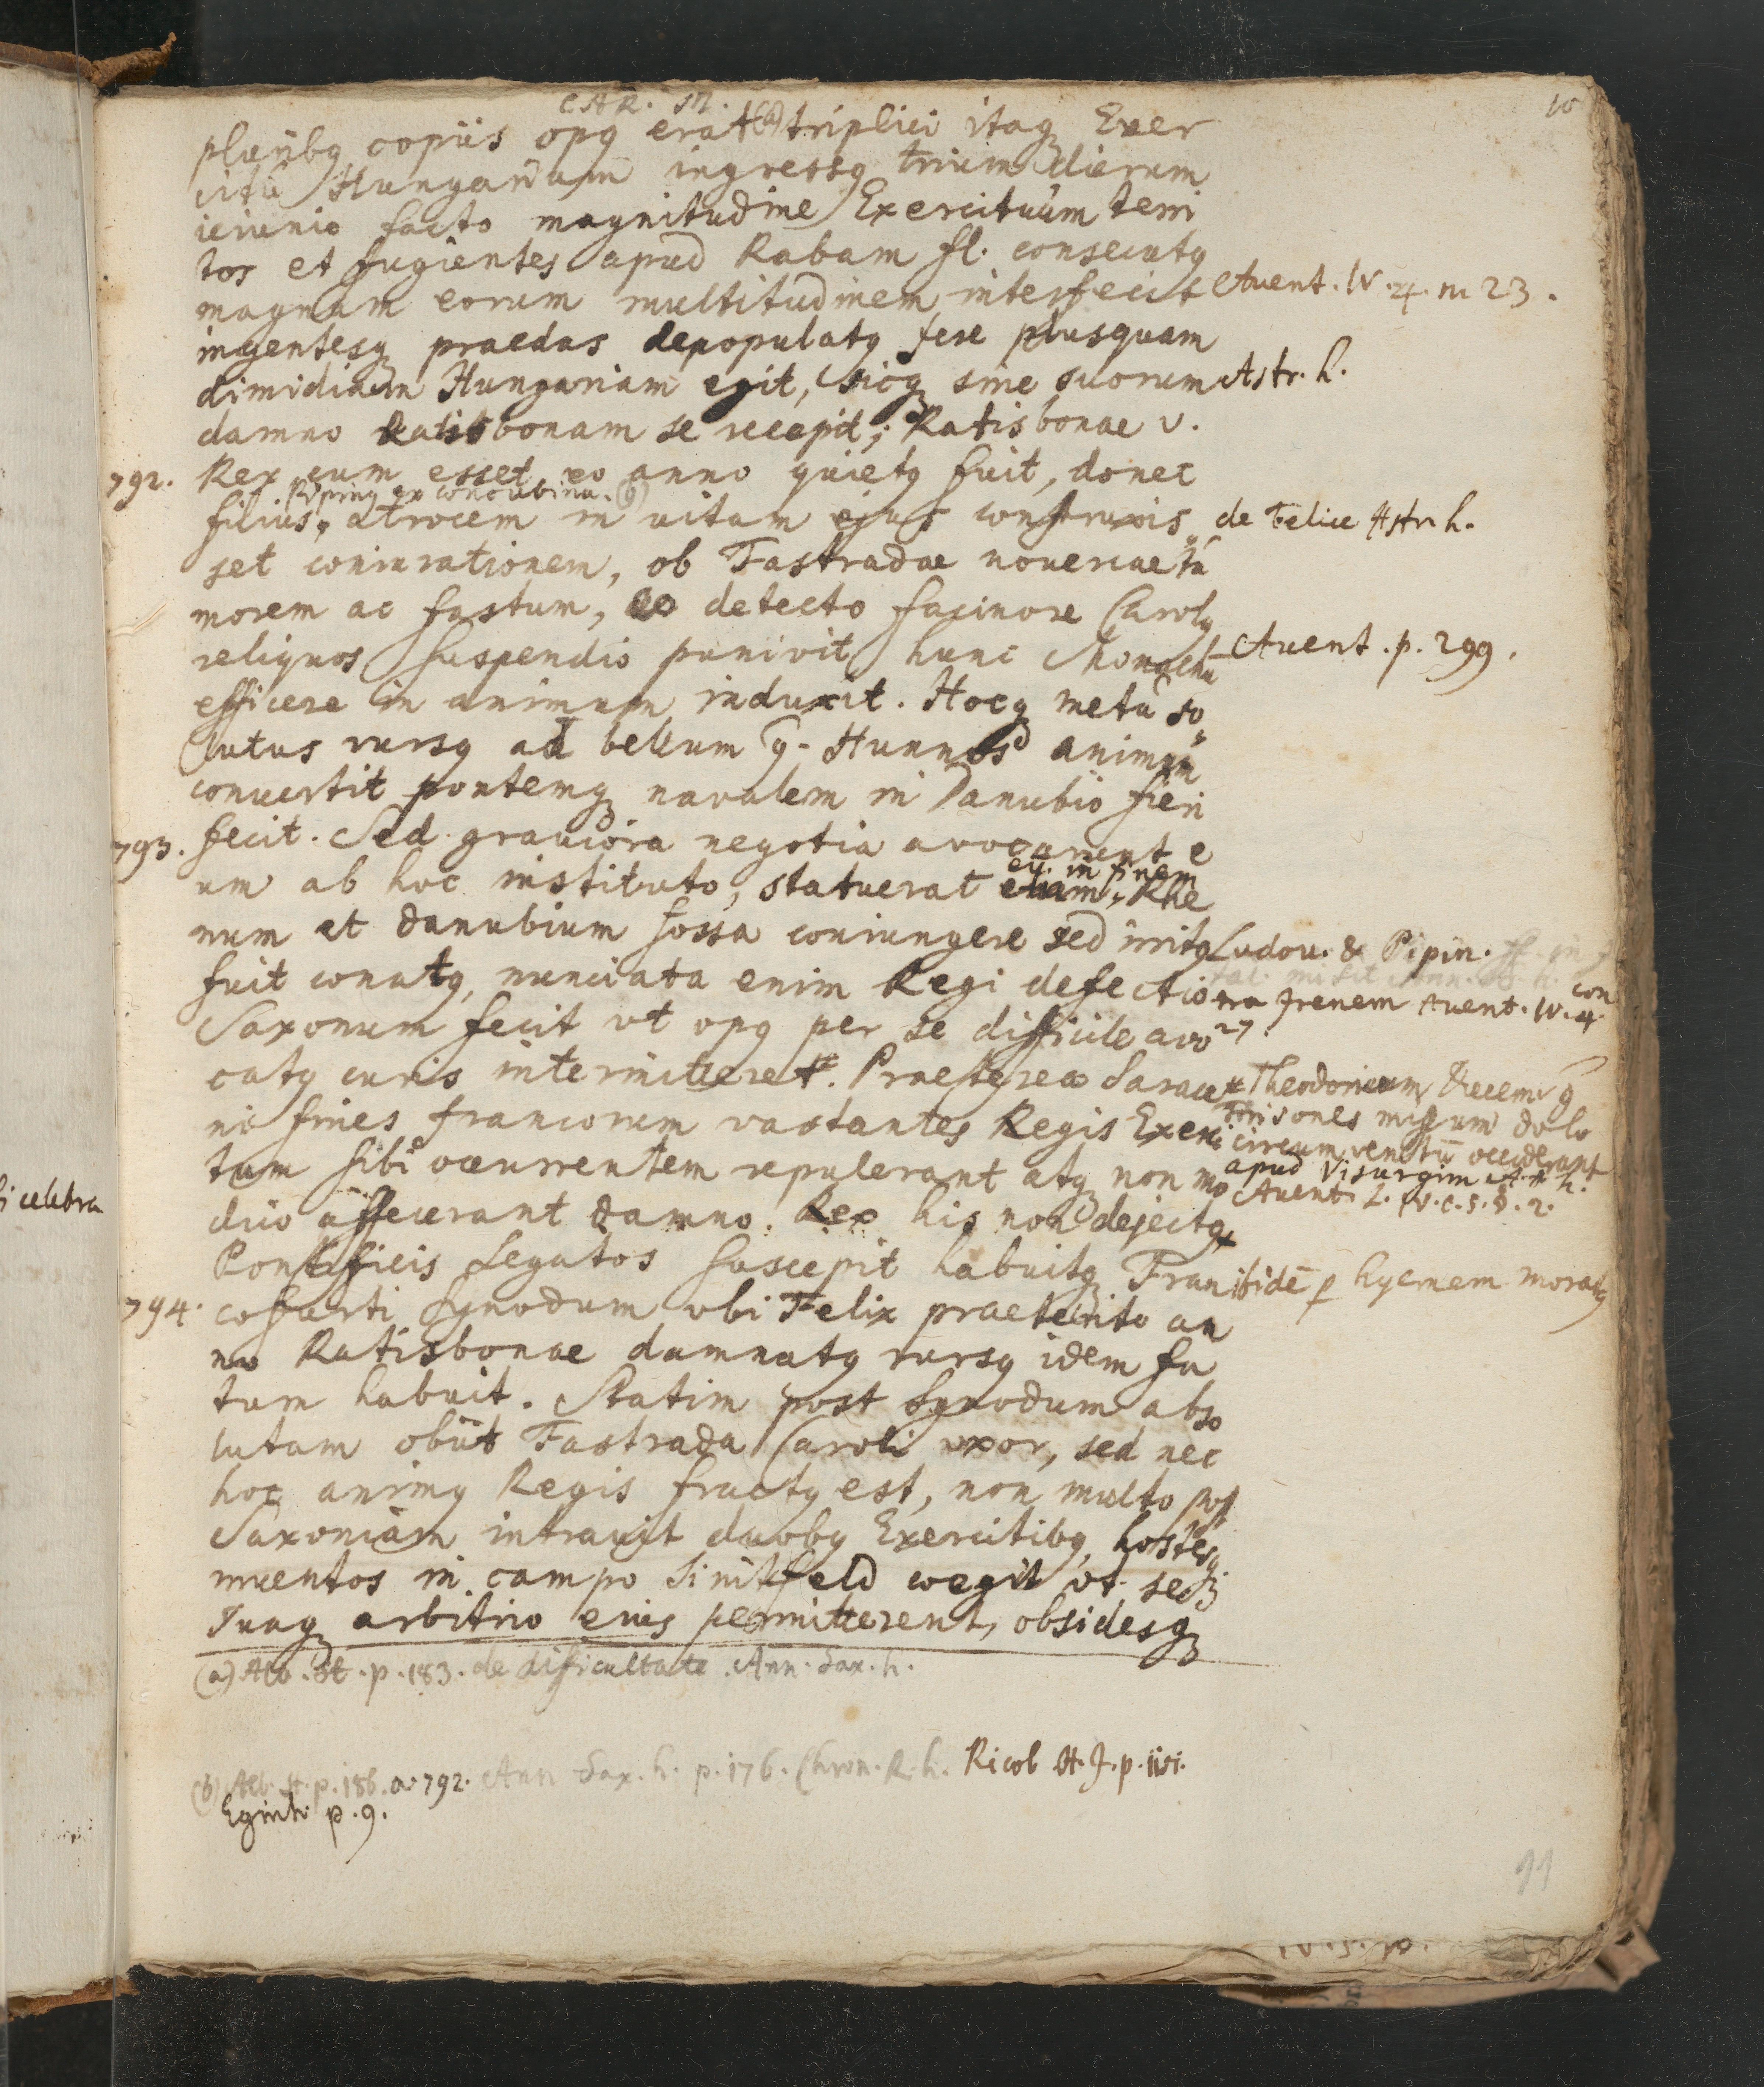 CAR. M.
10
pluribq copiis opq erat (a) triplici itaq Exer
citu Hungariam ingressq trium dierum
ieiunio facto magnitudine Exercituum terri
tos et fugientes apud Rabam fl. consecutq
magnam eorum multitudinem interfecit Auent. IV. 4. m 23.
ingentesq praedas depopulatq fere plusquam
dimidiam Hungariam egit, sicq sine suorum Astr. h.
damno Ratisbonam se recepit; Ratisbonae v.
792. Rex cum esset eo anno quietq fuit, donec
Pipinq ex concubina. (b)
filius, atrocem in uitam ejus construxis de Felice Astr. h.
set coniurationem, ob Fastradae nouercae tu
morem ac fastum, eo detecto facinore Carolq
reliquos suspendio punivit hunc Monachū Auent. p. 299.
efficere in animum induxit. Hocq metu so
lutus rursq ad bellum q. Hunnos animum
conuertit pontemq navalem in Danubio fieri
793. fecit. Sed grauiora negotia avocarunt e
um ab hoc instituto, statuerat etiam, Rhe
eū. in finem
num et Danubium fossa coniungere sed irritq
fuit conatq, nunciata enim Regi defectio
Saxonum fecit vt opq per se difficile avo
catq curis intermitteret. Praeterea Sarace
ni fines francorum vastantes Regis Exerci
tum sibi occurrentem repulerant atq non mo
dico affecerant damno. Rex his non dejectq
Pontificis Legatos suscepit habuitq Fran
794. cofurti synodum vbi Felix praeterito an
no Ratisbonae damnatq rursq idem fa
tum habuit. Statim post synodum abso
lutam obiit Fastrada Caroli uxor, sed nec
hoc animq Regis fractq est, non multo post
Saxoniam intravit duobq Exercitibq, hostesq
inuentos in campo Sinitfeld coegit vt se
suaq arbitrio eius permitterent, obsidesq
Ludou. & Pipin.
con
tra Irenem Auent. IV. 4.
27
Theodoricum Ducem q
Frisones missum dolo
circumventū occiderunt
apud Visurgim A. F. h.
Auent. L. IV. c. 5. §. 2.
ibidē p hyemem moratq
(a) Alb. St. p. 183. de difficultate. Ann. Sax. h.
(b) Alb. St. p. 186. a. 792. Ann Sax. h. p. 176. Chron. R. h. Ricob H. I. p. 1151.
Eginh p. 9.